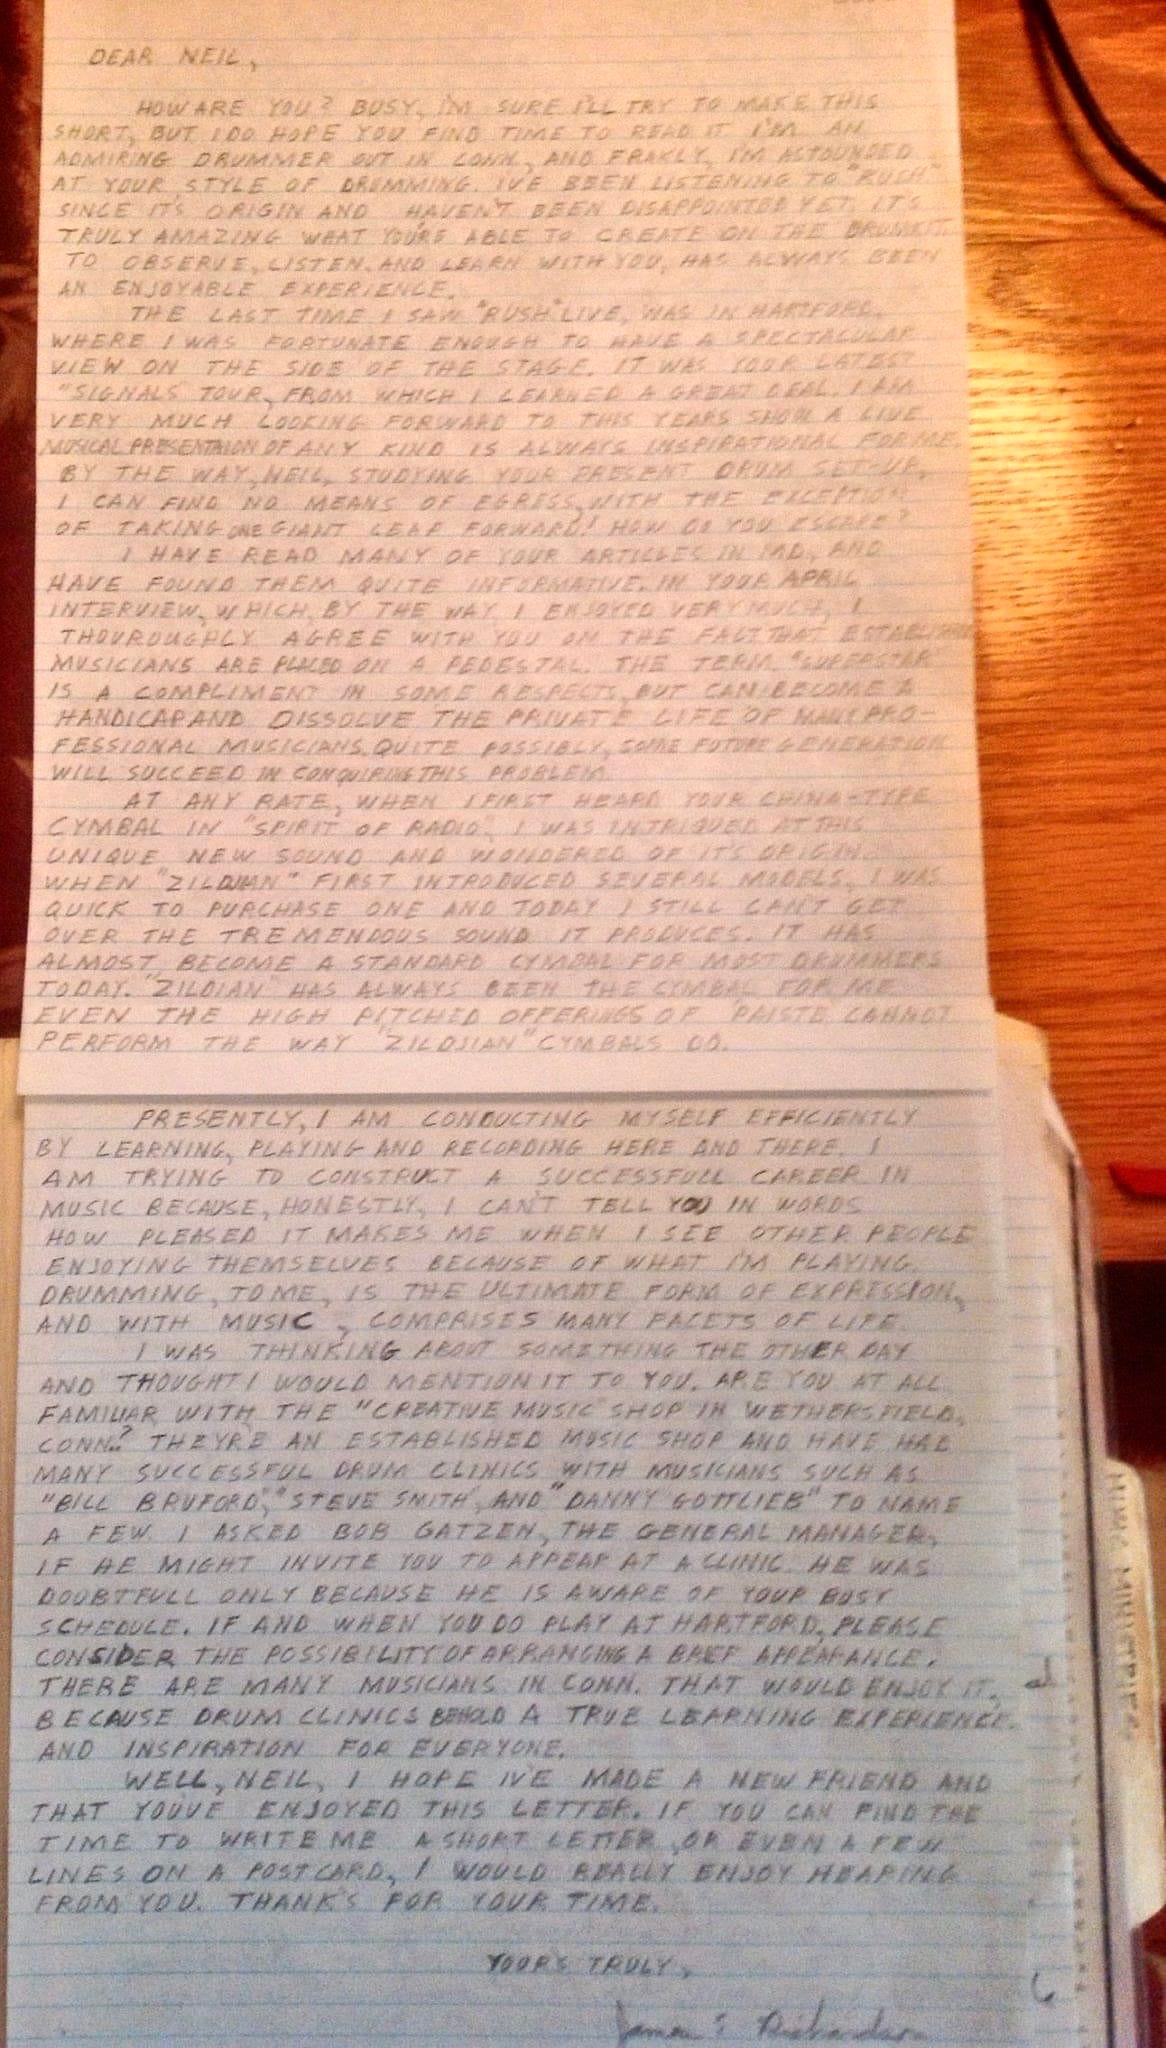 DEAR NEIL,
HOW ARE YOU? BUSY, I'M SURE I'LL TRY TO MAKE THIS
SHORT, BUT I DO HOPE YOU FIND TIME TO READ IT I'M AN
ADMIRING DRUMMER OUT IN CONN, AND FRAKLY, I'M ASTOUNDED
AT YOUR STYLE OF DRUMMING. I'VE BEEN LISTENING TO "RUSH"
SINCE IT'S ORIGIN AND HAVEN'T BEEN DISAPPOINTED YET. IT'S
TRULY AMAZING WHAT YOU'RE ABLE TO CREATE ON THE DRUMKIT.
TO OBSERVE, LISTEN, AND LEARN WITH YOU, HAS ALWAYS BEEN
AN ENJOYABLE EXPERIENCE.
THE LAST TIME I SAW "RUSH" LIVE, WAS IN HARTFORD,
WHERE I WAS FORTUNATE ENOUGH TO HAVE A SPECTACULAR
VIEW ON THE SIDE OF THE STAGE. IT WAS YOUR LATEST
"SIGNALS" TOUR, FROM WHICH I LEARNED A GREAT DEAL. I AM
VERY MUCH LOOKING FORWARD TO THIS YEARS SHOW A LIVE
MUSICAL PRESENTAION OF ANY KIND IS ALWAYS INSPIRATIONAL FOR ME.
BY THE WAY, NEIL, STUDYING YOUR PRESENT DRUM SET-UP,
I CAN FIND NO MEANS OF EGRESS, WITH THE EXCEPTION
OF TAKING ONE GIANT LEAP FORWARD! HOW DO YOU ESCAPE?
I HAVE READ MANY OF YOUR ARTICLES IN MD, AND
HAVE FOUND THEM QUITE INFORMATIVE. IN YOUR APRIL
INTERVIEW, WHICH, BY THE WAY, I ENJOYED VERY MUCH, I
THOUROUGHLY AGREE WITH YOU ON THE FACT THAT ESTABLISHED
MUSICIANS ARE PLACED ON A PEDESTAL. THE TERM "SUPERSTAR"
IS A COMPLIMENT IN SOME RESPECTS, BUT CAN BECOME A
HANDICAP AND DISSOLVE THE PRIVATE LIFE OF MANY PRO-
FESSIONAL MUSICIANS. QUITE POSSIBLY, SOME FUTURE GENERATION
WILL SUCCEED IN CONQUIRING THIS PROBLEM.
AT ANY RATE, WHEN I FIRST HEARD YOUR CHINA-TYPE
CYMBAL IN "SPIRIT OF RADIO", I WAS INTRIGUED AT THIS
UNIQUE NEW SOUND AND WONDERED OF IT'S ORIGIN.
WHEN "ZILDJIAN" FIRST INTRODUCED SEVERAL MODELS, I WAS
QUICK TO PURCHASE ONE AND TODAY I STILL CAN'T GET
OVER THE TREMENDOUS SOUND IT PRODUCES. IT HAS
ALMOST BECOME A STANDARD CYMBAL FOR MOST DRUMMERS
TODAY. "ZILDJIAN" HAS ALWAYS BEEN THE CYMBAL FOR ME
EVEN THE HIGH PITCHED OFFERINGS OF PAISTE CANNOT
PERFORM THE WAY "ZILDJIAN" CYMBALS DO.
PRESENTLY, I AM CONDUCTING MYSELF EFFICIENTLY
BY LEARNING, PLAYING AND RECORDING HERE AND THERE. I
AM TRYING TO CONSTRUCT A SUCCESSFULL CAREER IN
MUSIC BECAUSE, HONESTLY, I CAN'T TELL YOU IN WORDS
HOW PLEASED IT MAKES ME WHEN I SEE OTHER PEOPLE
ENJOYING THEMSELVES BECAUSE OF WHAT I'M PLAYING.
DRUMMING, TO ME, IS THE ULTIMATE FORM OF EXPRESSION,
AND WITH MUSIC, COMPRISES MANY FACETS OF LIFE.
I WAS THINKING ABOUT SOMETHING THE OTHER DAY
AND THOUGHT I WOULD MENTION IT TO YOU. ARE YOU AT ALL
FAMILIAR WITH THE "CREATIVE MUSIC" SHOP IN WETHERSFIELD,
CONN.? THEY'RE AN ESTABLISHED MUSIC SHOP AND HAVE HAD
MANY SUCCESSFUL DRUM CLINICS WITH MUSICIANS SUCH AS
"BILL BRUFORD", "STEVE SMITH", AND "DANNY GOTTLIEB" TO NAME
A FEW. I ASKED BOB GATZEN, THE GENERAL MANAGER,
IF HE MIGHT INVITE YOU TO APPEAR AT A CLINIC. HE WAS
DOUBTFULL ONLY BECAUSE HE IS AWARE OF YOUR BUSY
SCHEDULE. IF AND WHEN YOU DO PLAY AT HARTFORD, PLEASE
CONSIDER THE POSSIBILITY OF ARRANGING A BRIEF APPEARANCE.
THERE ARE MANY MUSICIANS IN CONN. THAT WOULD ENJOY IT,
BECAUSE DRUM CLINICS BEHOLD A TRUE LEARNING EXPERIENCE
AND INSPIRATION FOR EVERYONE.
WELL, NEIL, I HOPE I'VE MADE A NEW FRIEND AND
THAT YOU'VE ENJOYED THIS LETTER. IF YOU CAN FIND THE
TIME TO WRITE ME A SHORT LETTER, OR EVEN A FEW
LINES ON A POSTCARD, I WOULD REALLY ENJOY HEARING
FROM YOU. THANKS FOR YOUR TIME.
YOURS TRULY,
James S Richardson